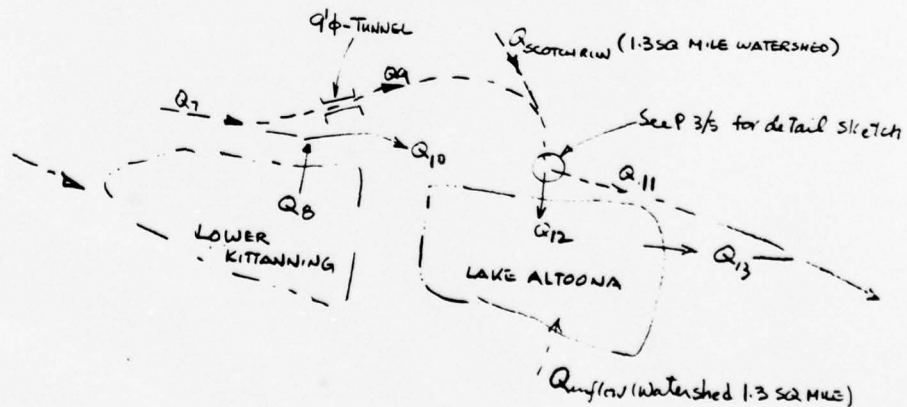 9'φ-TUNNEL
QSCOTCH RUN (1.3 SQ MILE WATERSHED)
Q7
Q9
See P 3/5 for detail sketch
Q10
Q11
Q8
Q12
LOWER
KITTANNING
LAKE ALTOONA
Q13
Qinflow (Watershed 1.3 SQ MILE)